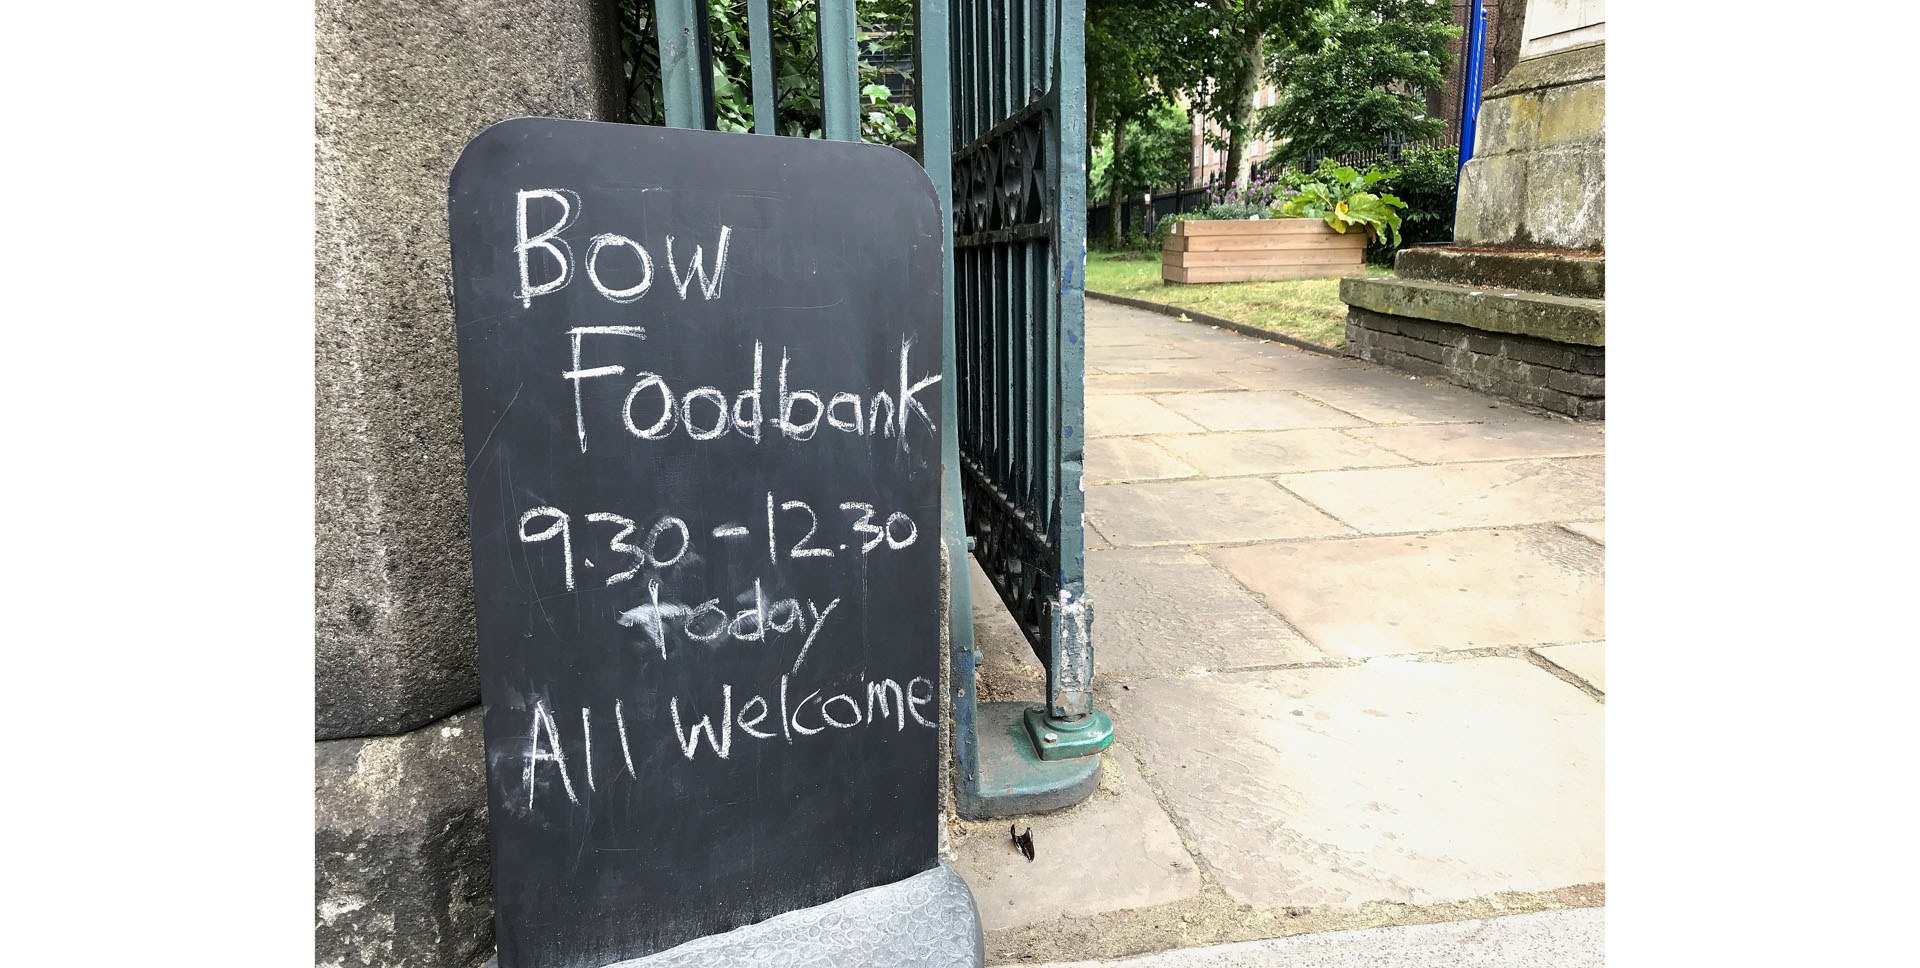 Bow
Foodbank
9.30-12.30
today
All Welcome